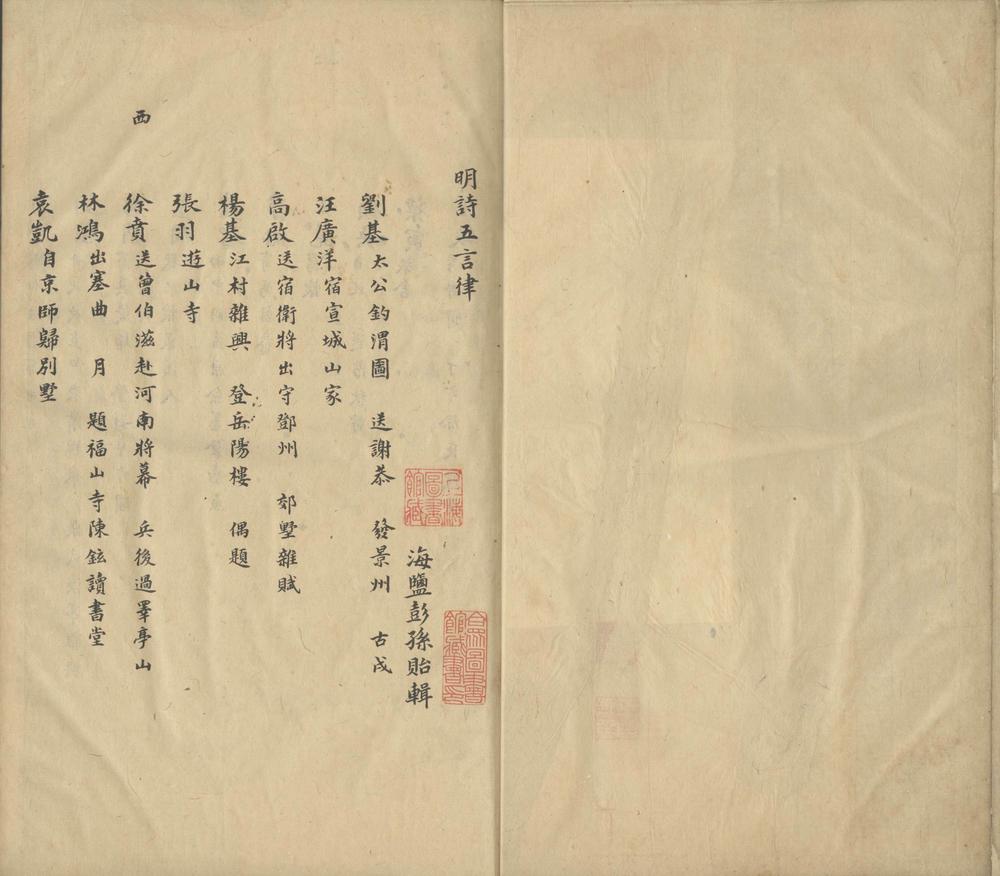 明詩五言律
海鹽彭孫貽輯
劉基太公釣渭圖　送謝恭　發景州　古戍
汪廣洋宿宣城山家
高啟送宿衛將出守鄧州　郊墅雜賦
楊基江村雜興　登岳陽樓　偶題
張羽遊山寺
西
徐賁送曾伯滋赴河南將幕　兵後過罩亭山
林鴻出塞曲　月　題福山寺陳鉉讀書堂
袁凱自京師歸別墅
圖書
館藏
合眾圖書
館藏書印